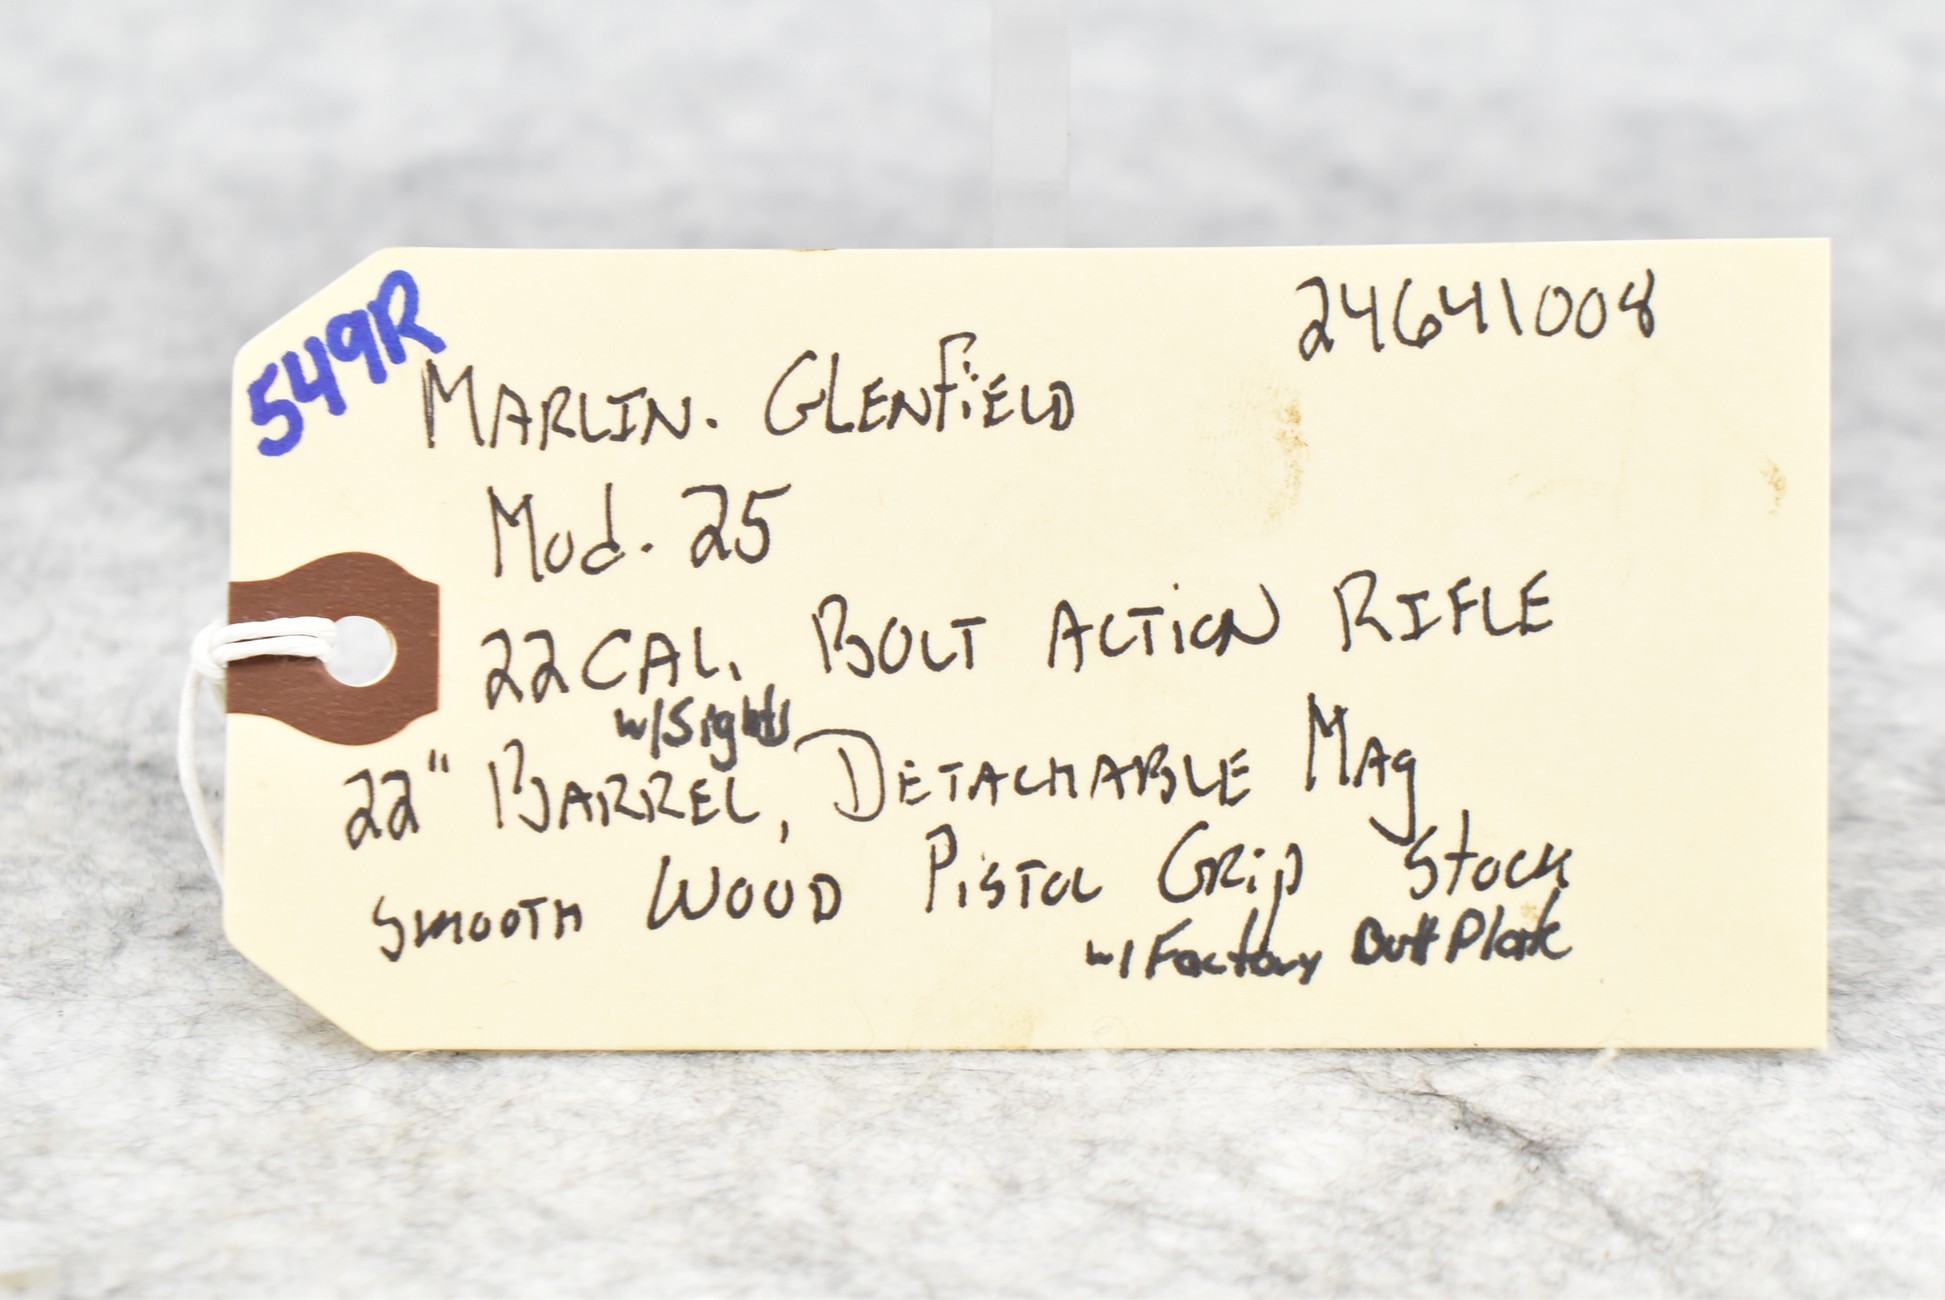 549R
24641008
MARLIN. GLENFiELD
Mod. 25
22 CAL. BOLT ACTiON RIFLE
w/Sights
22" BARREL, DETACHABLE MAg
SMOOTH WOOD PiSTOL GRip Stock
w/ Factory Butt Plate